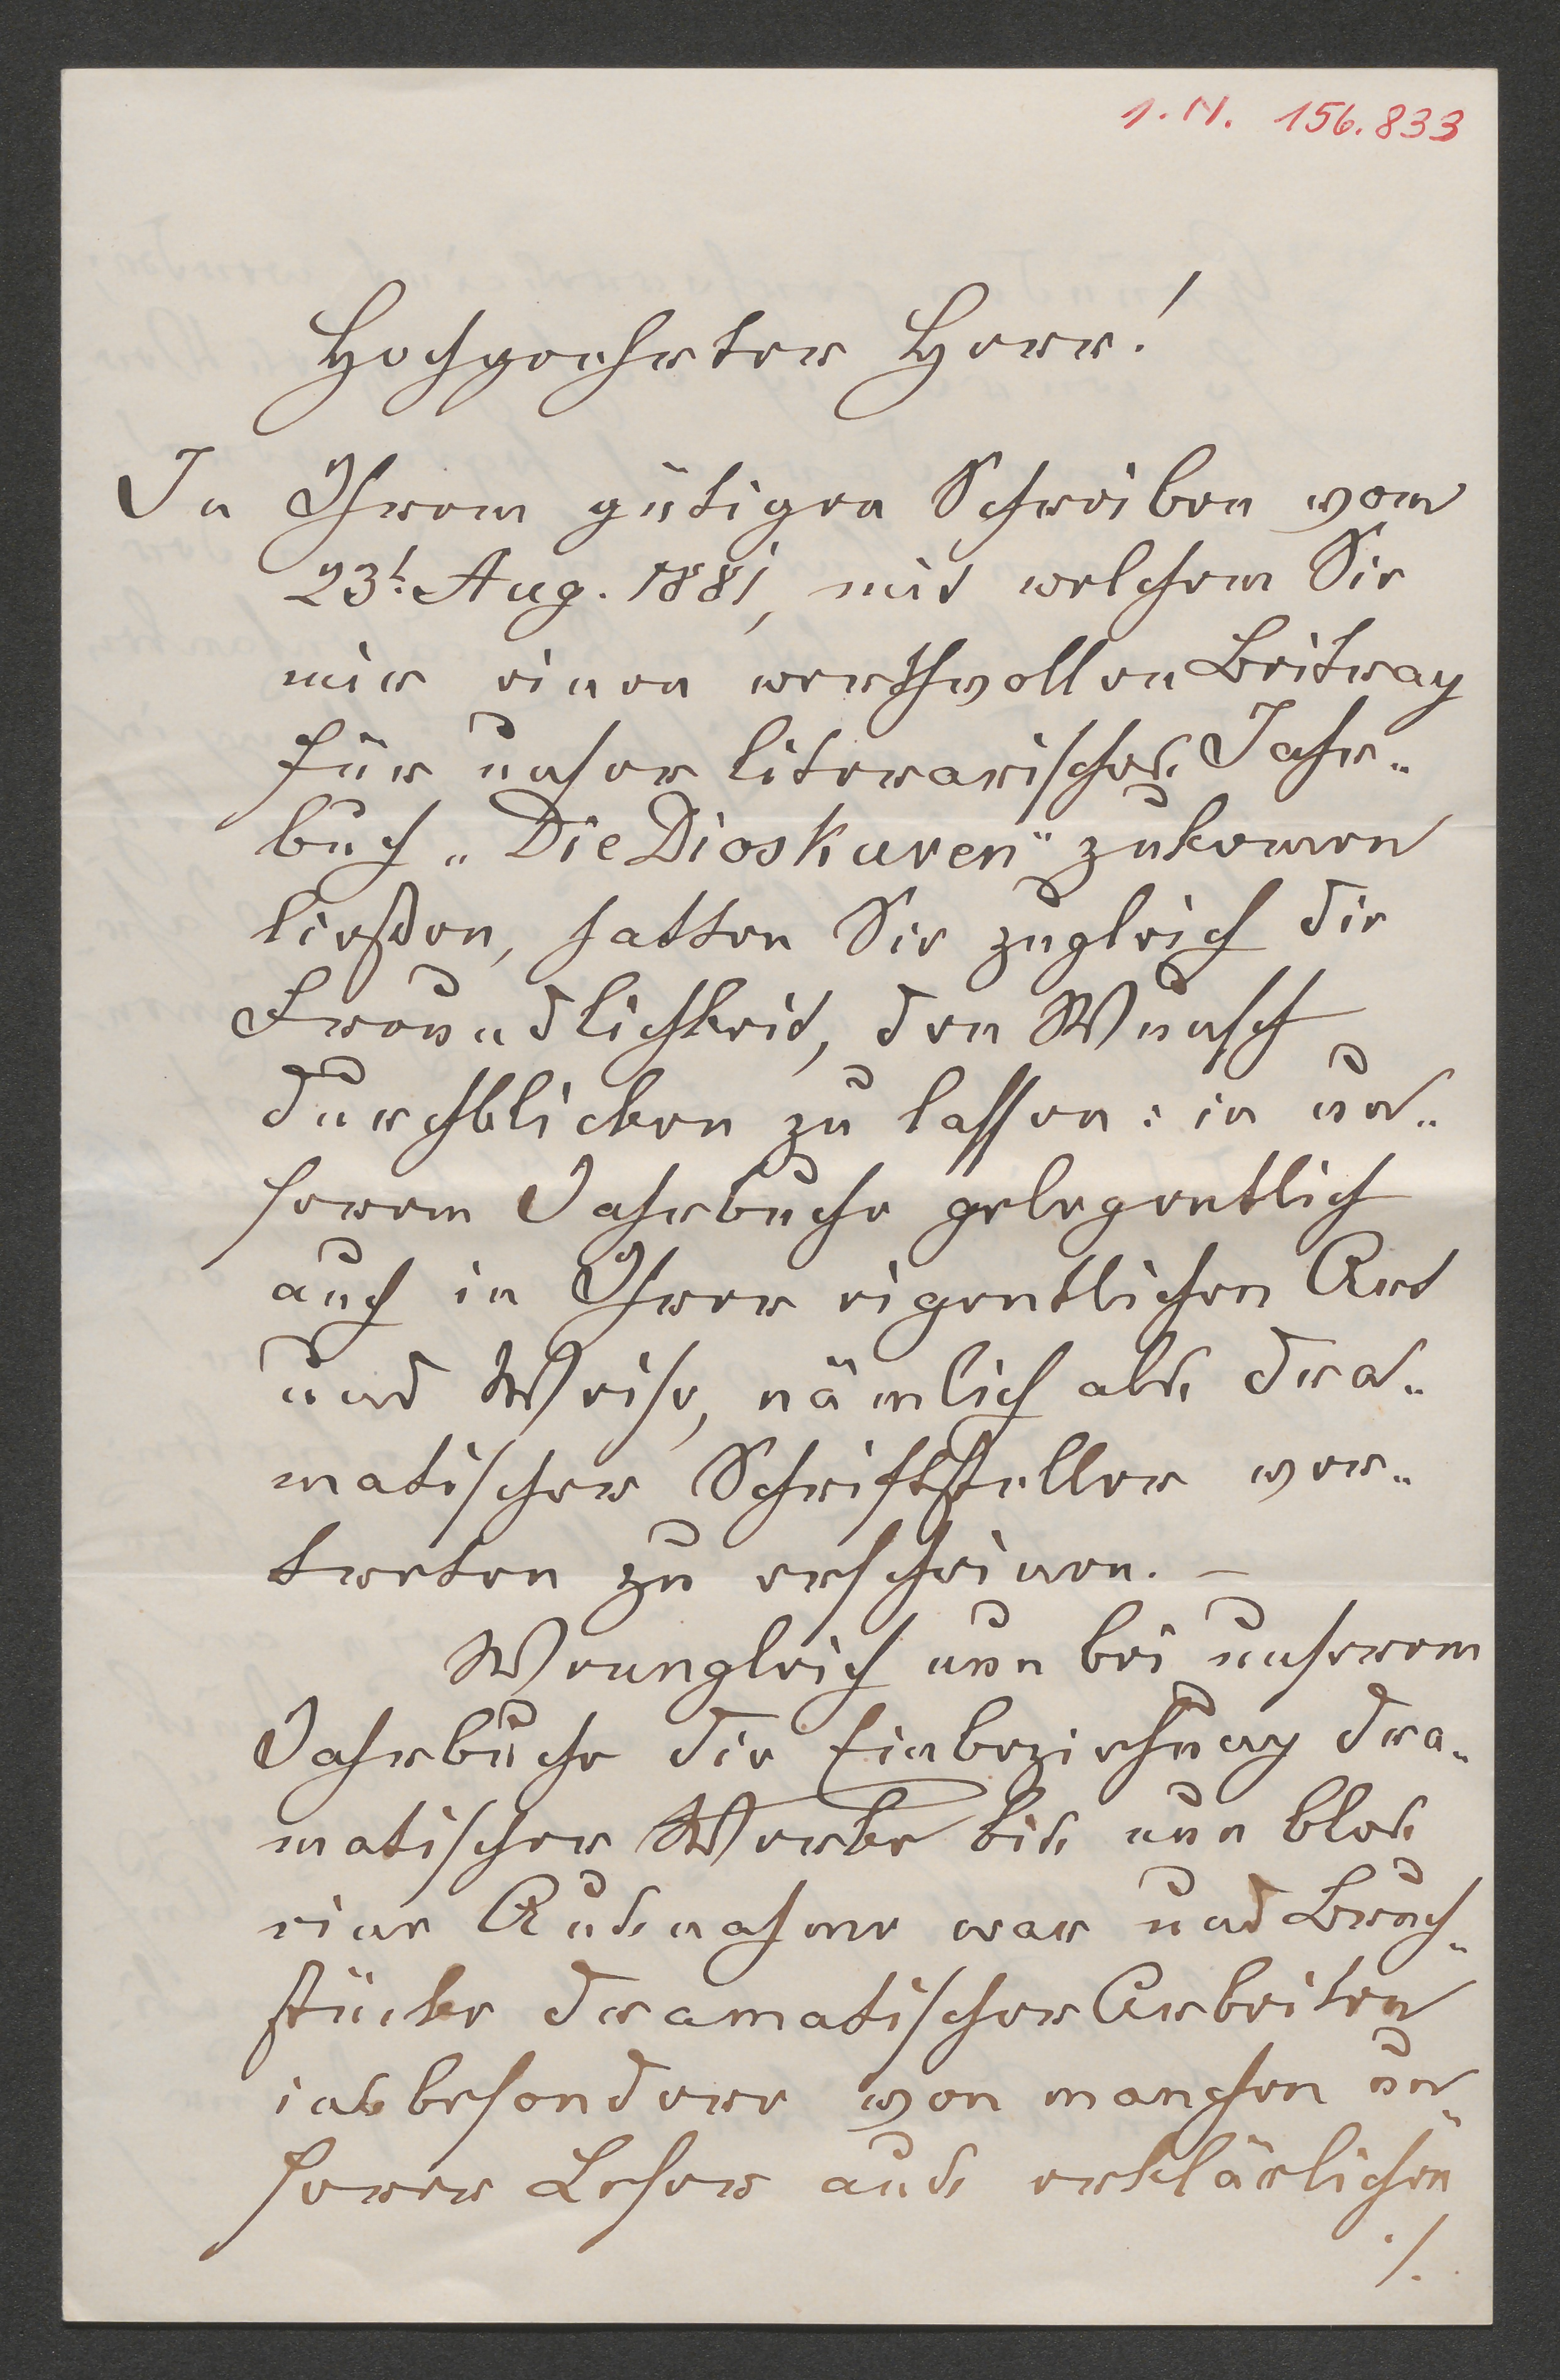 I. N. 156.833
Hochgeehrter Herr!
In Ihrem gütigen Schreiben vom
23t. Aug. 1881, mit welchem Sie
mir einen werthvollen Beitrag
für unser literarisches Jahr„
buch „Die Dioskuren" zukomen
ließen, hatten Sie zugleich die
Freundlichkeit, den Wunsch
durchblicken zu lassen: in un„
serem Jahrbuche gelegentlich
auch in Ihrer eigentlichen Art
und Weise, nämlich als dra„
matischer Schriftsteller ver„
treten zu erscheinen. –
Wenngleich nun bei unserem
Jahrbuche die Einbeziehung dra„
matischer Werke bis nun blos
eine Ausnahme war und Bruch„
stücke dramatischer Arbeiten
insbesondere von manchen un„
serer Leser aus erklärlichen
./.